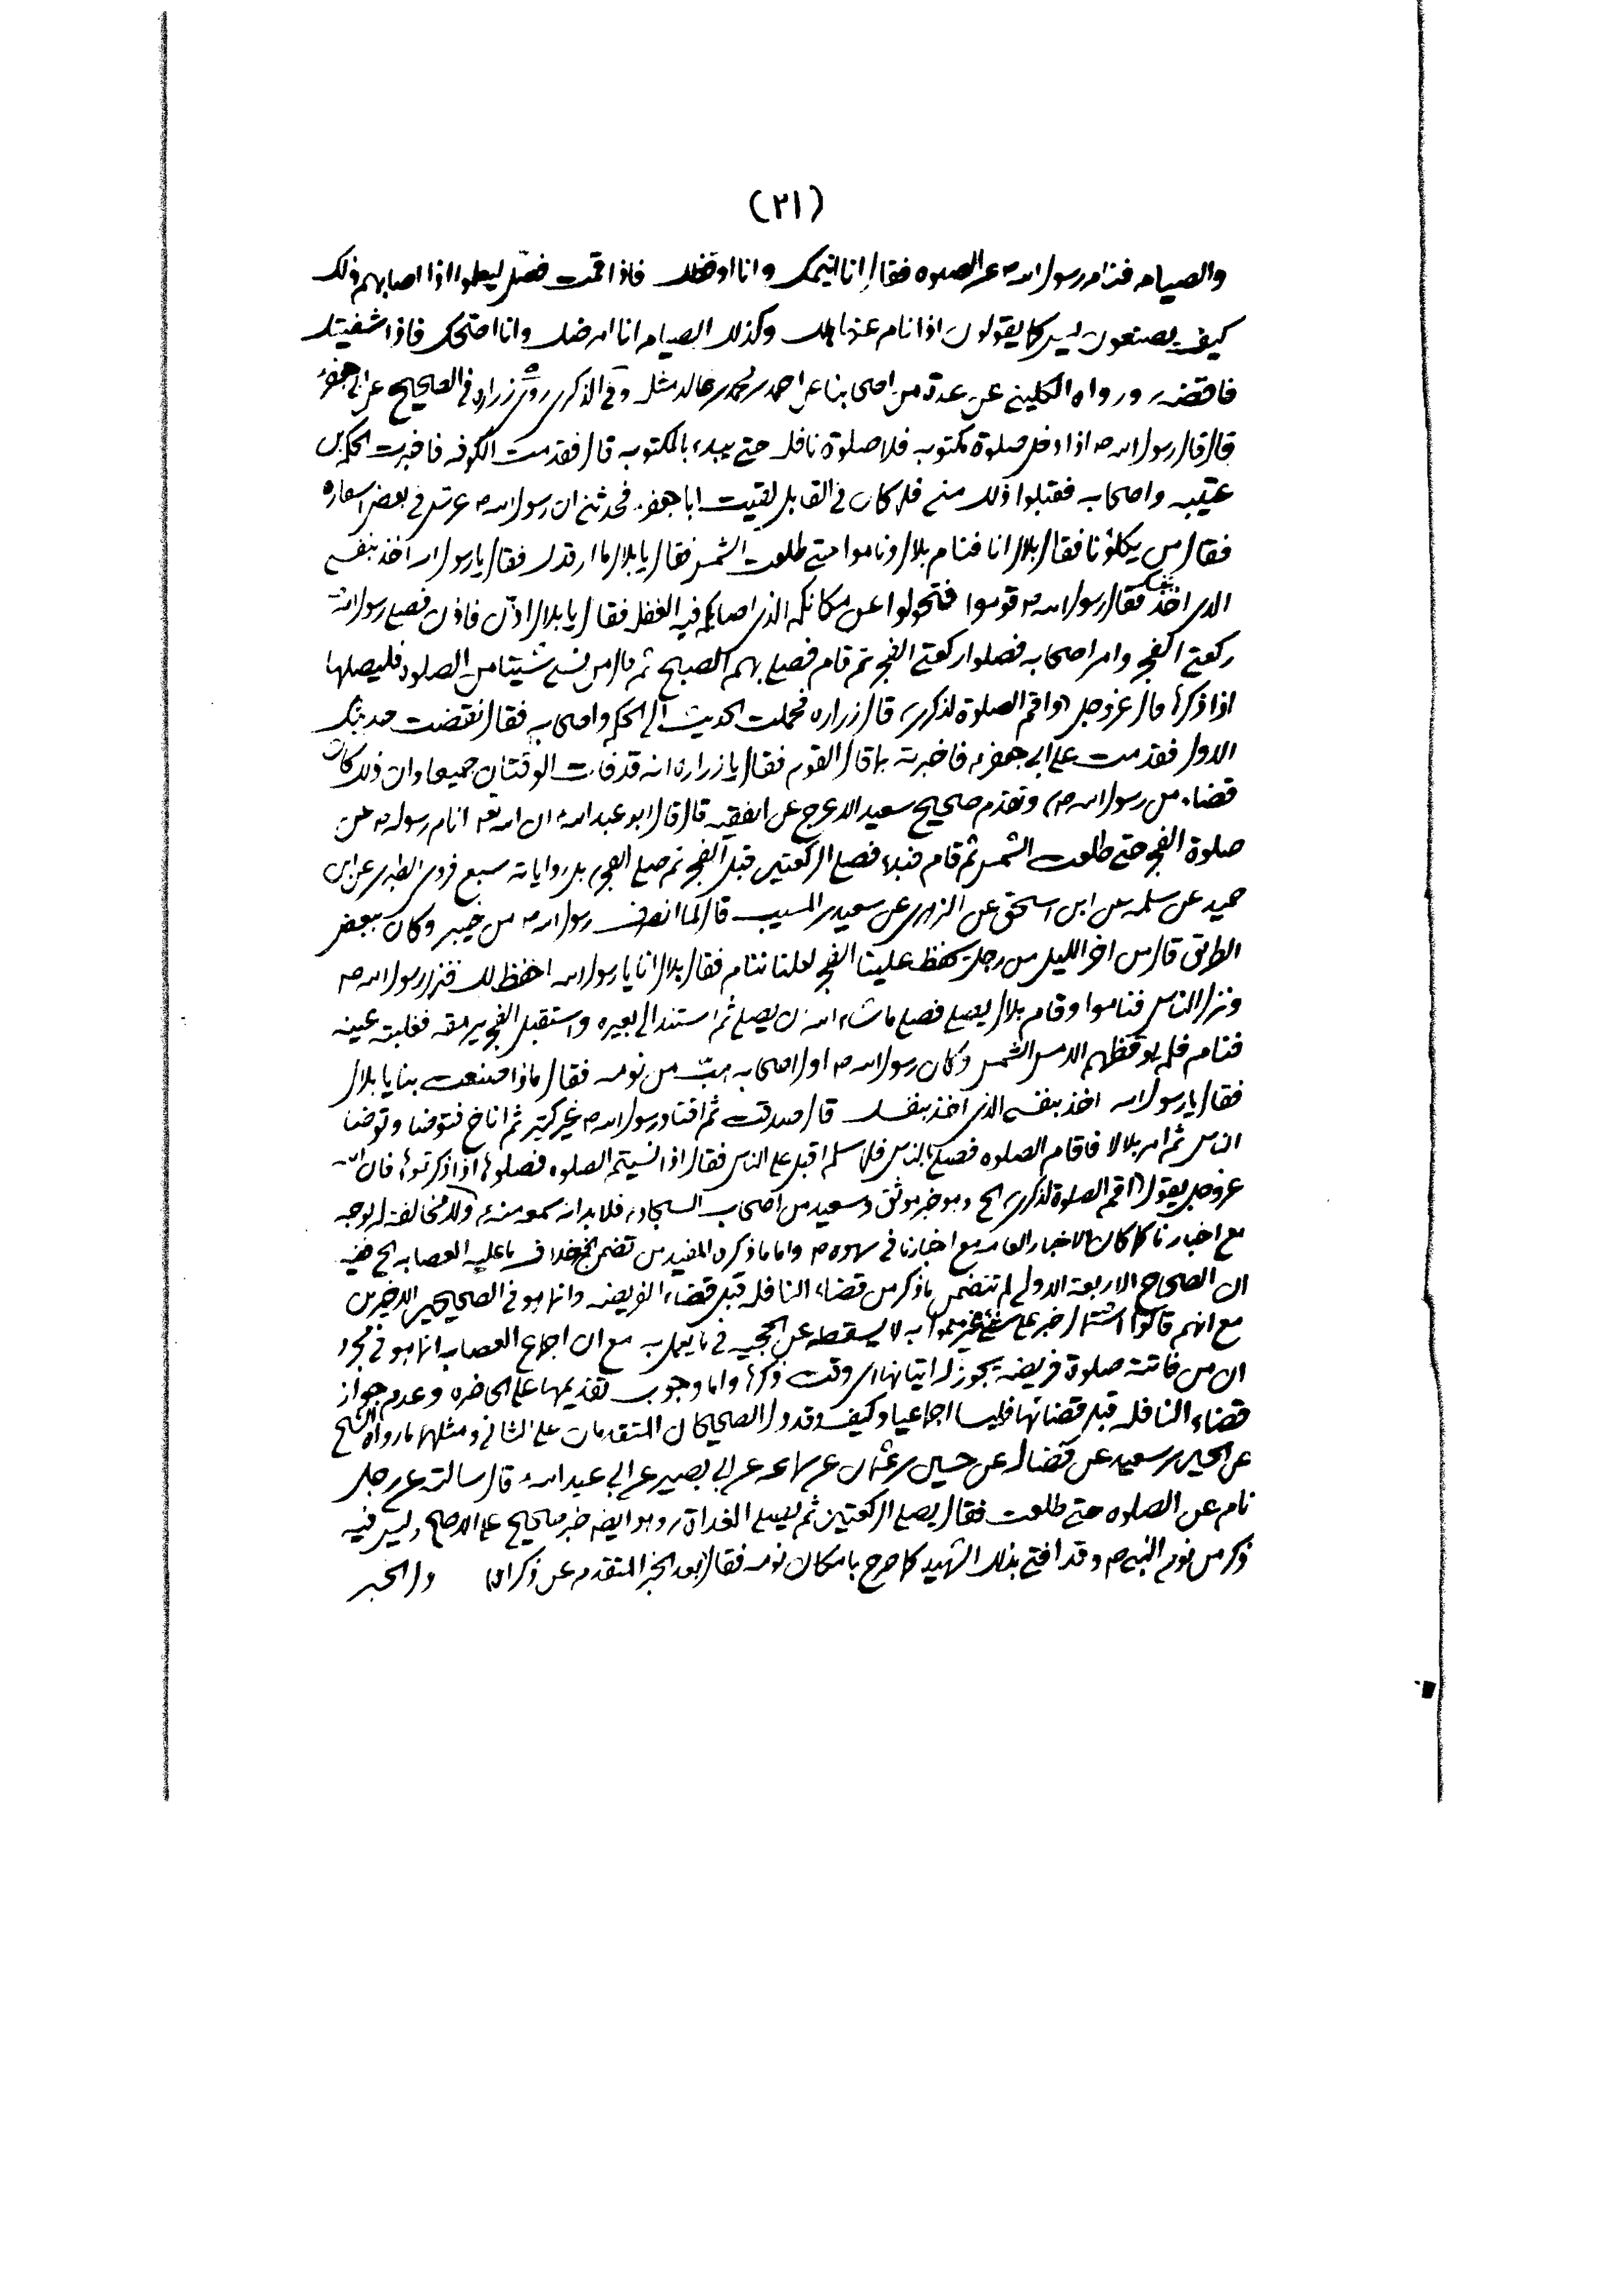 (٢١)
والصيام فنام رسول الله ص عن الصلوه فقال انا انيمك وانا اوقظك فاذا قمت فصل ليعلموا اذا اصابهم ذلك
كيف يصنعون ليس كما يقولون اذا نام عنها هلك وكذلك الصيام انا امرضك وانا اصحك فاذا شفيتك
فاقضه ورواه الكليني عن عدة من اصحابنا عن احمد بن محمد بن خالد مثله وفي الذكرى روى زراره في الصحيح عن ابي جعفر
قال قال رسول الله ص اذا دخل صلوة مكتوبه فلا صلوة نافله حتى يبدء بالمكتوبه قال فقدمت الكوفه فاخبرت الحكم بن
عتيبه واصحابه فقبلوا ذلك مني فلما كان في القابل لقيت ابا جعفر فحدثني ان رسول الله ص عرس في بعض اسفاره
فقال من يكلؤنا فقال بلال انا فنام بلال وناموا حتى طلعت الشمس فقال يا بلال ما ارقدك فقال يا رسول الله اخذ بنفسي
الذي اخذ بنفسك فقال رسول الله ص قوموا فتحولوا عن مكانكم الذي اصابكم فيه الغفله فقال يا بلال اذّن فاذن فصلى رسول الله
ركعتي الفجر وامر اصحابه فصلوا ركعتي الفجر ثم قام فصلى بهم الصبح ثم قال من نسي شيئا من الصلوة فليصلها
اذا ذكرها قال عز وجل (واقم الصلوة لذكرى) قال زراره فحملت الحديث الى الحكم واصحابه فقال نقضت حديثك
الاول فقدمت على ابي جعفر فاخبرته بما قال القوم فقال يا زراره انه قد فات الوقتان جميعا وان ذلك كان
قضاء من رسول الله ص) وتقدم صحيح سعيد الاعرج عن الفقيه قال قال ابو عبد الله ان الله تعـ انام رسوله ص عن
صلوة الفجر حتى طلعت الشمس ثم قام فبدء فصلى الركعتين قبل الفجر ثم صلى الفجر بل رواياته سبع فروى الطبرى عن ابن
حميد عن سلمه عن ابن اسحق عن الزهرى عن سعيد بن المسيب قال لما انصرف رسول الله ص من خيبر وكان ببعض
الطريق قال من اخر الليل من رجل يحفظ علينا الفجر لعلنا ننام فقال بلال انا يا رسول الله احفظ لك فنزل رسول الله ص
ونزل الناس فناموا وقام بلال يصلى فصلى ما شاء الله ان يصلى ثم استند الى بعيره واستقبل الفجر يرمقه فغلبته عينه
فنام فلم يوقظهم الا مس الشمس وكان رسول الله ص اول اصحابه هبّ من نومه فقال ماذا صنعت بنا يا بلال
فقال يا رسول الله اخذ بنفسي الذى اخذ بنفسك قال صدقت ثم اقتاد رسول الله ص غير كثير ثم اناخ فتوضا وتوضا
الناس ثم امر بلالا فاقام الصلوه فصلى بالناس فلما سلم اقبل على الناس فقال اذا نسيتم الصلوه فصلوها اذا ذكرتموها فان الله
عز وجل يقول (اقم الصلوة لذكرى) الخ وهو خبر موثق وسعيد من اصحاب السجاد فلا بد انه سمعه منه ولا مخالفة له بوجه
مع اخبارنا كما كان الاخبار العامه مع اخبارنا في سهوه ص واما ما ذكره المفيد من تضمن الخبر خلاف ما عليه العصابه الخ ففيه
ان الصحاح الاربعة الاولى لم تتضمن ما ذكر من قضاء النافله قبل قضاء الفريضه وانما هو في الصحيحين الاخيرين
مع انهم قالوا اشتمال خبر على شئ غير معمول به لا يسقطه عن الحجيه في ما يعمل به مع ان اجماع العصابه انما هو في مجرد
ان من فاتته صلوة فريضه يجوز له اتيانها اى وقت ذكرها واما وجوب تقديمها على الحاضره وعدم جواز
قضاء النافله قبل قضائها فليسا اجماعيا وكيف وقد دل الصحيحان المتقدمان على الثاني ومثلهما ما رواه الشيخ
عن الحسين بن سعيد عن فضاله عن حسين بن عثمان عن سماعه عن ابي بصير عن ابي عبد الله قال سالته عن رجل
نام عن الصلوه حتى طلعت فقال يصلى الركعتين ثم يصلى الغداة) وهو ايضا خبر صحيح على الاصح وليس فيه
ذكر من نوم النبي ص وقد افتى بذلك الشهيد كما صرح بامكان نومه فقال بعد الخبر المتقدم عن ذكراه (ول الخبر